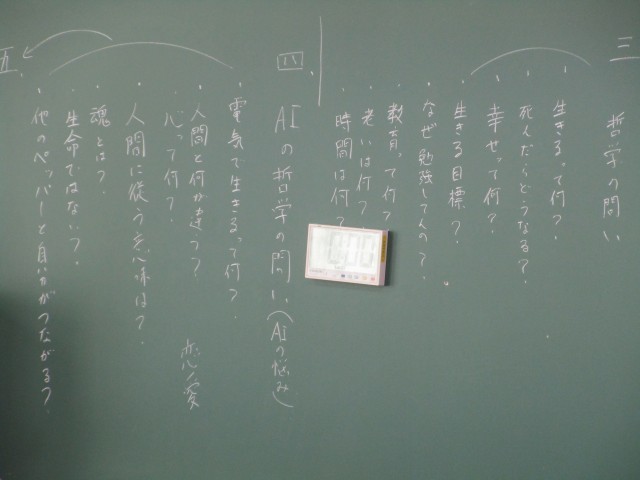 三
哲学の問い
・生きるって何?
・死んだらどうなる?
・幸せって何?
・生きる目標?
・なぜ勉強してんの?
・教育って何?
・老いは何?
・時間は何?
四、
AIの哲学の問い(AIの悩み)
・電気で生きるって何?
・人間と何が違う?
・心って何?
恋愛
・人間に従う意味は?
・魂とは?
・生命ではない?
・他のペッパーと自分がつながる?
五、